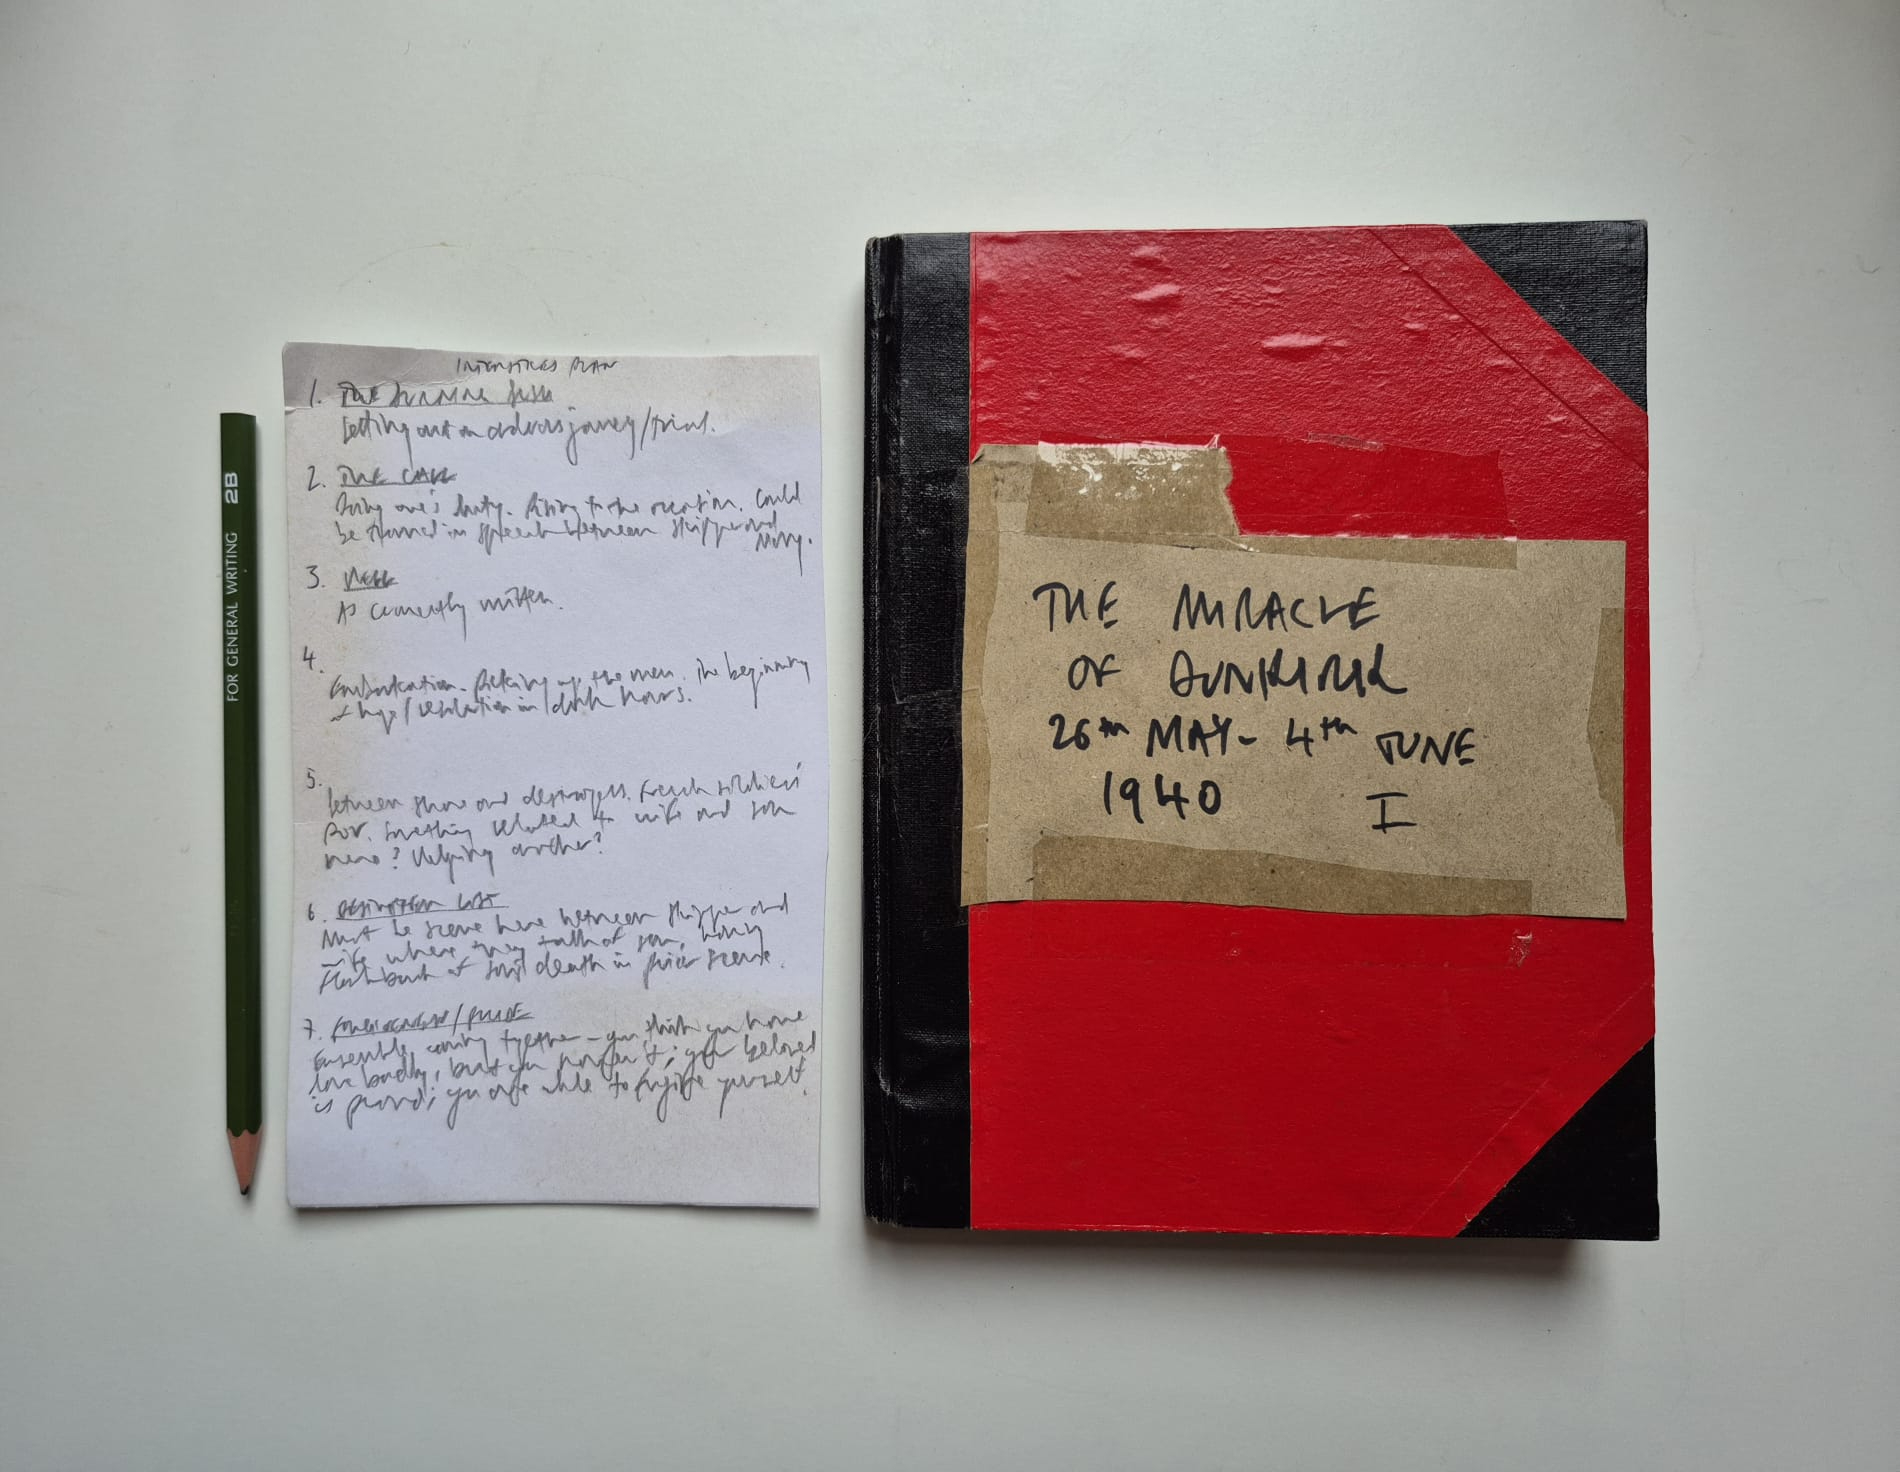 FOR GENERAL WRITING 2B
PLAN
1. THE
Setting out on journey/trial.
2. THE CALL
Doing one's duty. Rising to the occasion. Could
be in speech between skipper and
Navy.
3.
As currently written.
4.
Embarkation. Picking up the men. The beginning
of hope/resolution in dark hours.
5.
Between shore and destroyers. French soldiers'
POV. Something related to wife and son
here? Helping another?
6. LOST
Must be scene here between skipper and
wife where they talk of son, having
flashback of son's death in prior scene.
7. /PRIDE
Ensemble, coming together - you think you have
love badly, but you haven't; your beloved
is proud; you are able to forgive yourself.
THE MIRACLE
OF DUNKIRK
26th MAY - 4th JUNE
1940 I